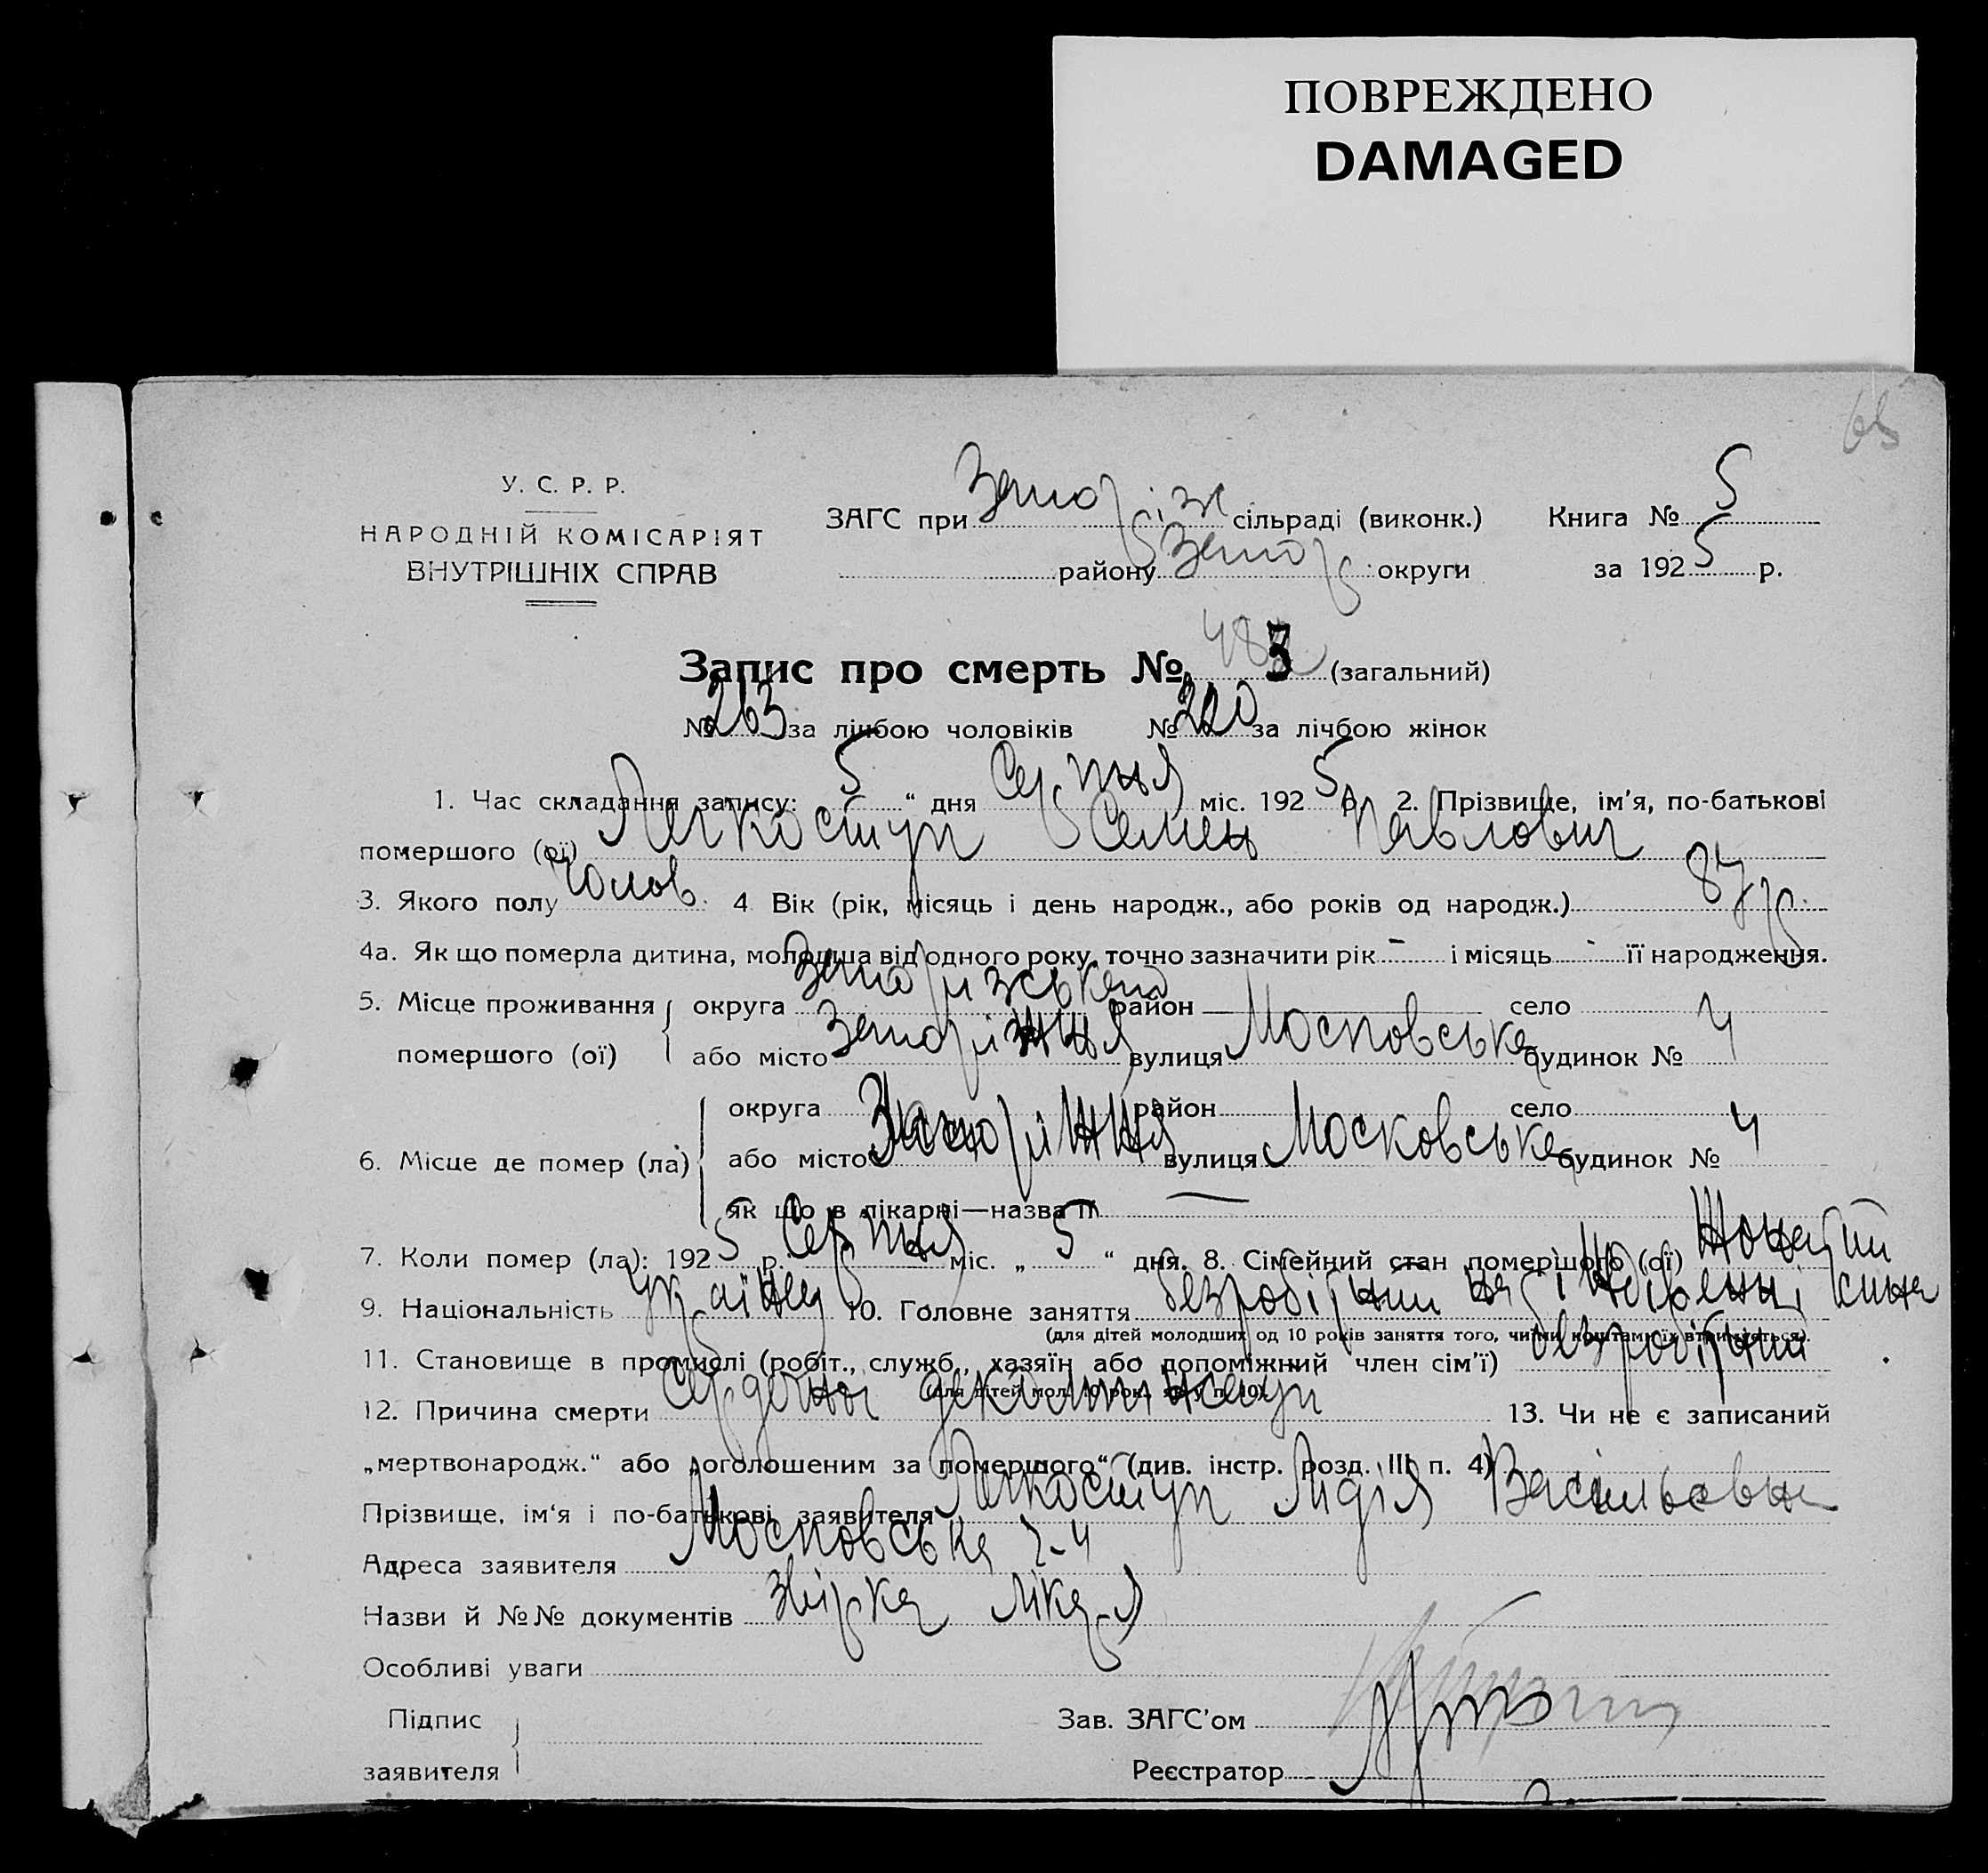 ПОВРЕЖДЕНО
DAMAGED
65
У. С. Р. Р.
НАРОДНІЙ КОМІСАРІЯТ
ВНУТРІШНІХ СПРАВ
ЗАГС при Запоріз сільраді (виконк.) Книга № 5
району Запор округи за 1925 р.
Запис про смерть № 483 (загальний)
№ 263 за лічбою чоловіків № 220 за лічбою жінок
1. Час складання запису: 5 " дня Серпня міс. 1925 р. 2. Прізвище, ім'я, по-батькові
помершого (ої) Легкоступ Семен Павлович
3. Якого полу чолов. 4 Вік (рік, місяць і день народж., або років од народж.) 87 р.
4а. Як що померла дитина, молодша від одного року, точно зазначити рік - і місяць - її народження.
5. Місце проживання помершого (ої) округа район село
або місто Запоріжжя вулиця Московська будинок № 4
6. Місце де помер (ла) округа район село
або місто Запоріжжя вулиця Московська будинок № 4
як що в лікарні—назва її —
7. Коли помер (ла): 1925 р. Серпня міс. „ 5 " дня. 8. Сімейний стан помершого (ої) Жонатий
9. Національність українец 10. Головне заняття безробітний на сина
(для дітей молодших од 10 років заняття того, чиїми коштами їх втримується).
11. Становище в промислі (робіт., служб., хазяїн або допоміжний член сім'ї) безробітний
(для дітей мол. 10 рок. як у п. 10).
12. Причина смерти 13. Чи не є записаний
„мертвонародж." або „оголошеним за помершого" (див. інстр. розд. III п. 4)
Прізвище, ім'я і по-батькові заявителя Легкоступ Лидія Васильовна
Адреса заявителя Московська 2-4
Назви й №№ документів лікаря
Особливі уваги
Підпис заявителя
Зав. ЗАГС'ом
Реєстратор